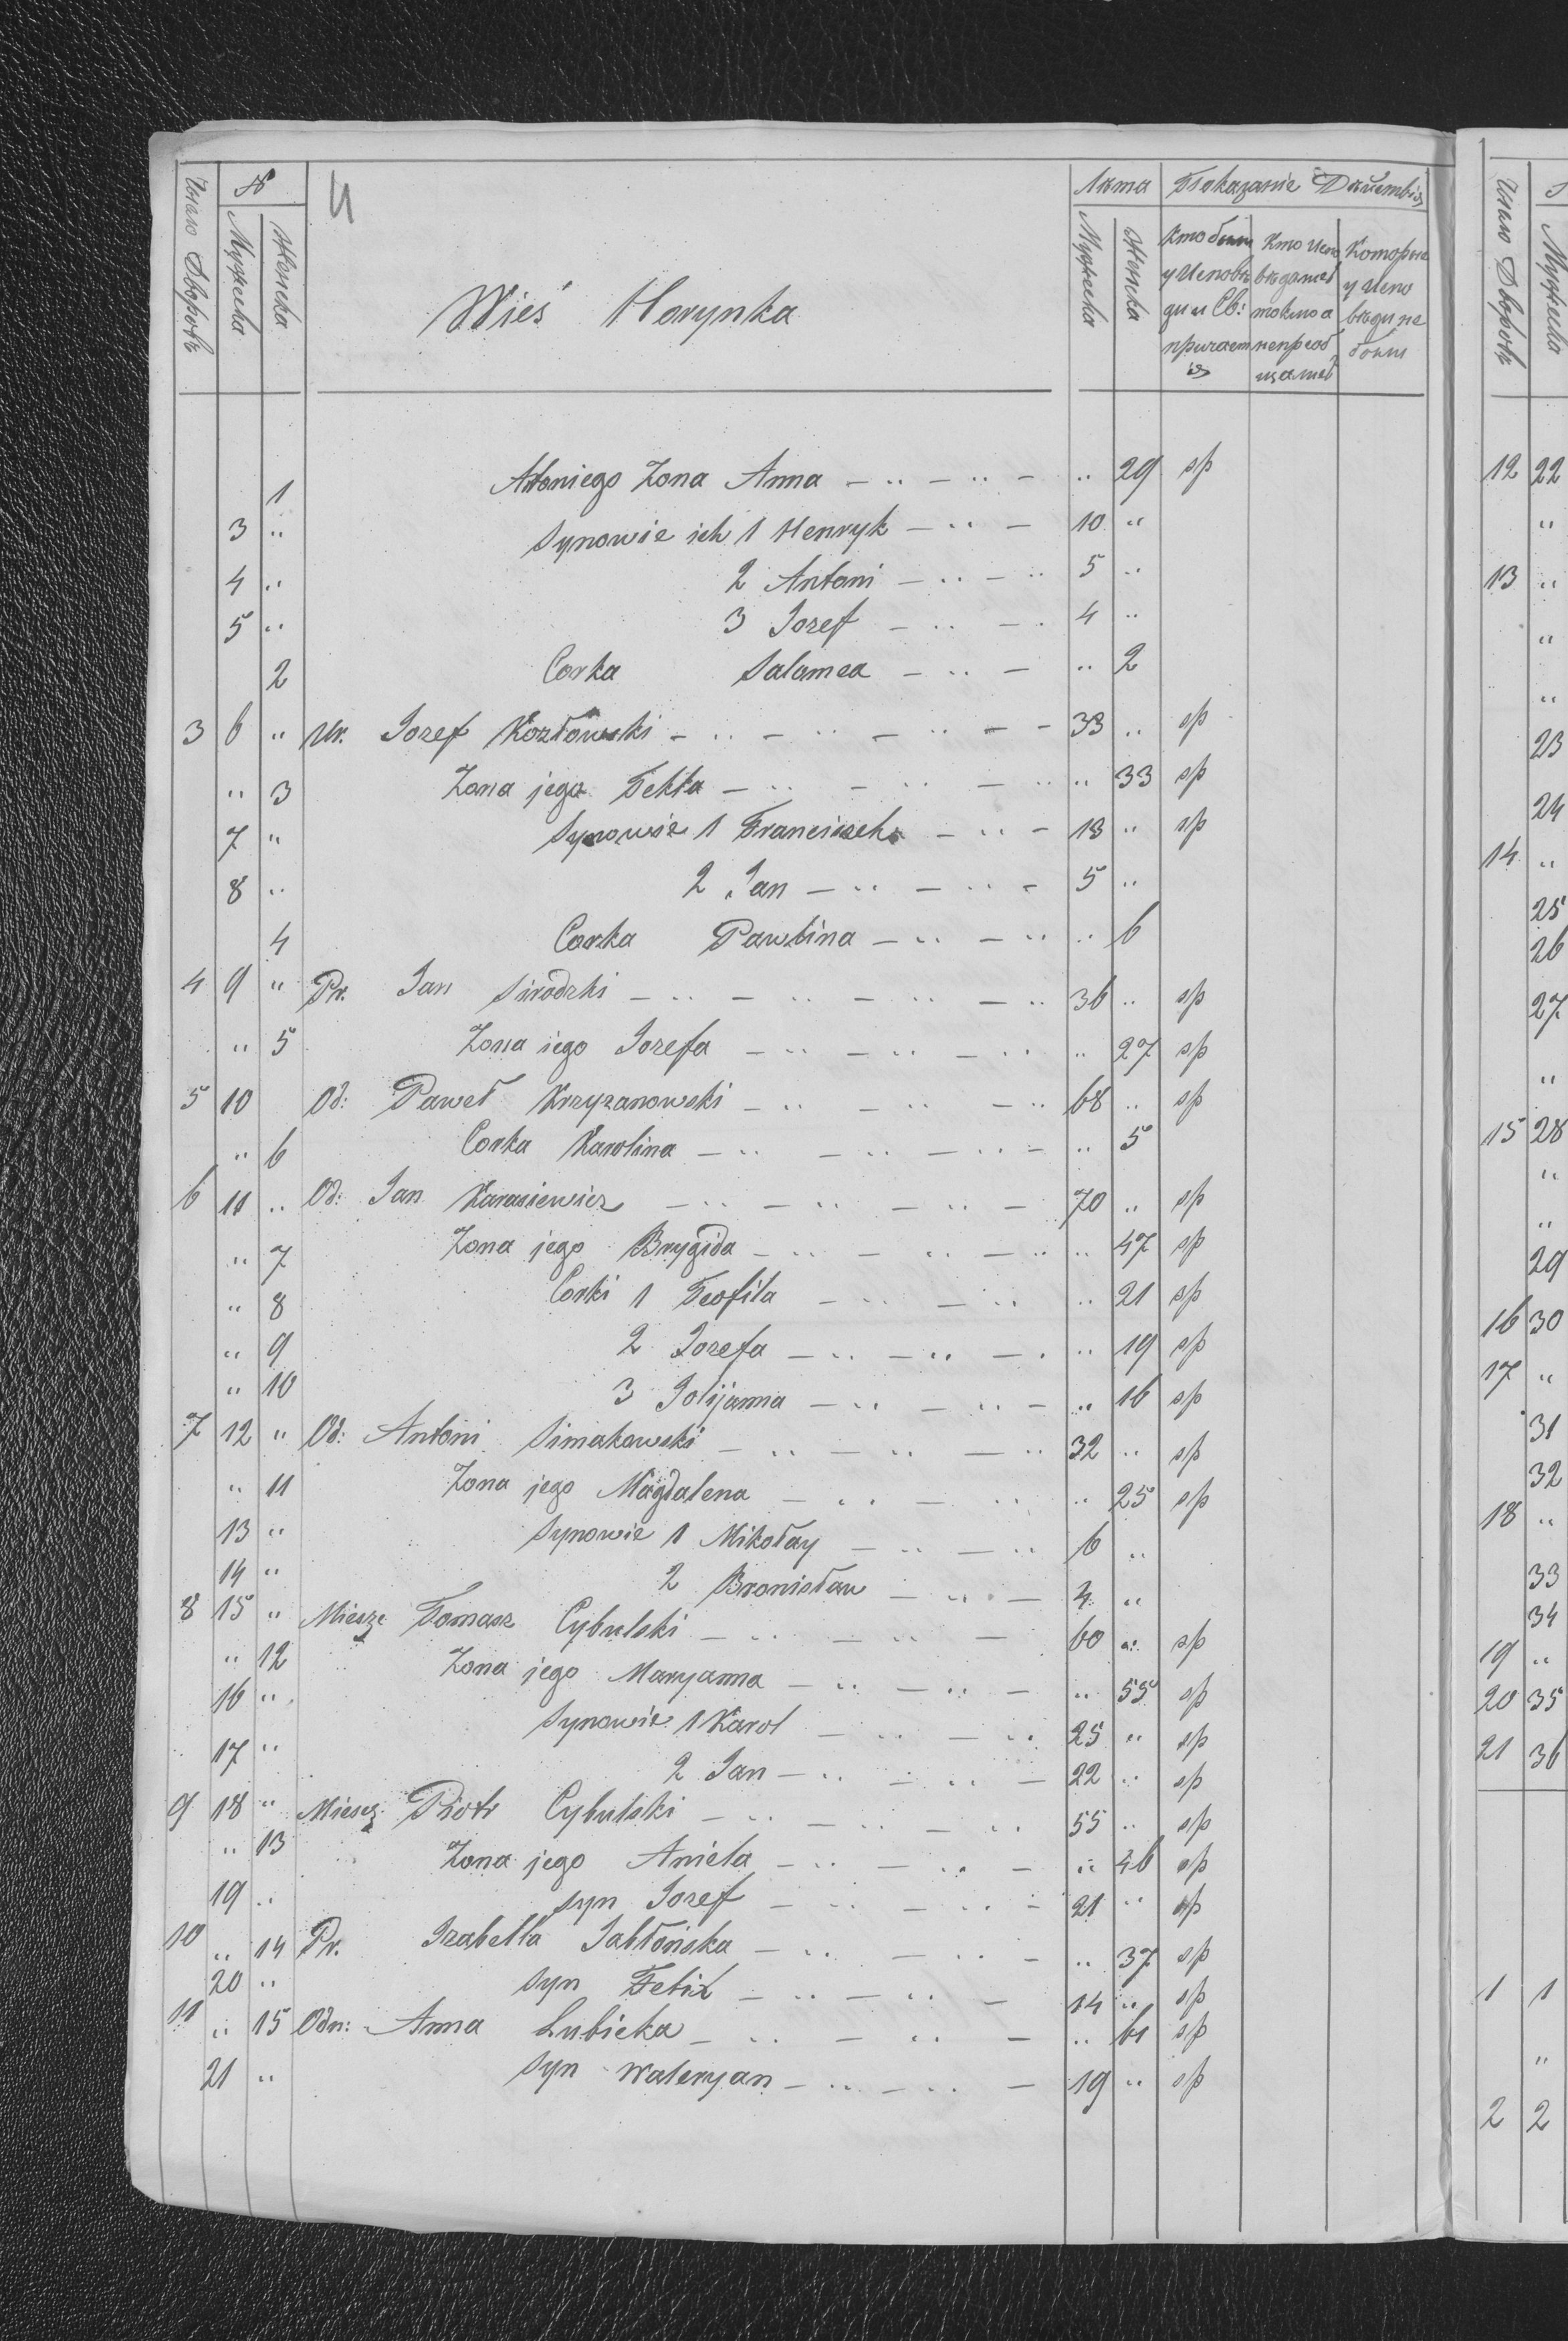 Число Дворовъ № Лѣта Показаніе Дѣйствія
Мужеска Женска Мужеска Женска
Кто были у Исповѣди и Св: причастія
Кто исповѣдались токмо а непріобщались
Которые у Исповѣди не были
4
Wieś Horynka
1 Antoniego Zona Anna — .. — .. — .. 29 sp
3 .. Synowie ich 1 Henryk — .. — 10 ..
4 .. 2 Antoni — .. — .. 5 ..
5 .. 3 Jozef — .. — . 4 ..
2 Corka Salomea — .. — .. 2
3 6 .. Ur. Jozef Kozłowski — .. — .. — .. — — 33 .. sp
.. 3 Zona jego Tekla — .. — .. — .. .. 33 sp
7 .. Synowie 1 Franciszek — .. — 13 .. sp
8 .. 2 Jan — .. — .. — 5 ..
4 Corka Pawlina — .. — .. .. 6
4 9 .. Pr. Jan Sirodzki — .. — .. — .. — .. 36 .. sp
.. 5 Zona iego Jozefa — .. — .. — .. .. 27 sp
5 10 Od: Paweł Krzyzanowski — .. — .. — .. 68 .. sp
.. 6 Corka Karolina — .. — .. — .. — .. 5
6 11 .. Od: Jan Karasiewicz — .. — .. — .. — 70 .. sp
.. 7 Zona jego Brygida — .. — .. — .. .. 47 sp
.. 8 Corki 1 Teofila — .. — .. .. 21 sp
.. 9 2 Jozefa — .. — .. — . .. 19 sp
.. 10 3 Jolijanna — .. — .. — .. 16 sp
7 12 .. Od: Antoni Simakowski — .. — .. — .. 32 .. sp
.. 11 Zona jego Magdalena — .. — .. .. 25 sp
13 .. Synowie 1 Mikołay — .. — .. 6 ..
14 .. 2 Bronisław — .. — 4 ..
8 15 .. Miesz: Tomasz Cybulski — .. — .. — 60 .. sp
.. 12 Zona jego Maryanna — .. — .. — .. 55 sp
16 .. Synowie 1 Karol — .. — .. 25 .. sp
17 .. 2 Jan — .. — .. — 22 .. sp
9 18 .. Miesz. Piotr Cybulski — .. — .. — .. 55 .. sp
.. 13 Zona jego Aniela — .. — .. — .. 46 sp
19 .. syn Jozef — .. — .. — 21 .. sp
10 .. 14 Pr. Izabella Jabłońska — .. — .. — .. 37 sp
20 .. syn Felix — .. — .. — 14 .. sp
11 .. 15 Odn: Anna Lubicka — .. — .. — .. 61 sp
21 .. syn Waleryan — .. — .. — 19 .. sp
Число Дворовъ Мужеска
12 22
..
13 ..
..
..
23
24
14 ..
25
26
27
..
15 28
..
..
29
16 30
17 ..
31
32
18 ..
33
34
19 ..
20 35
21 36
1 1
..
2 2